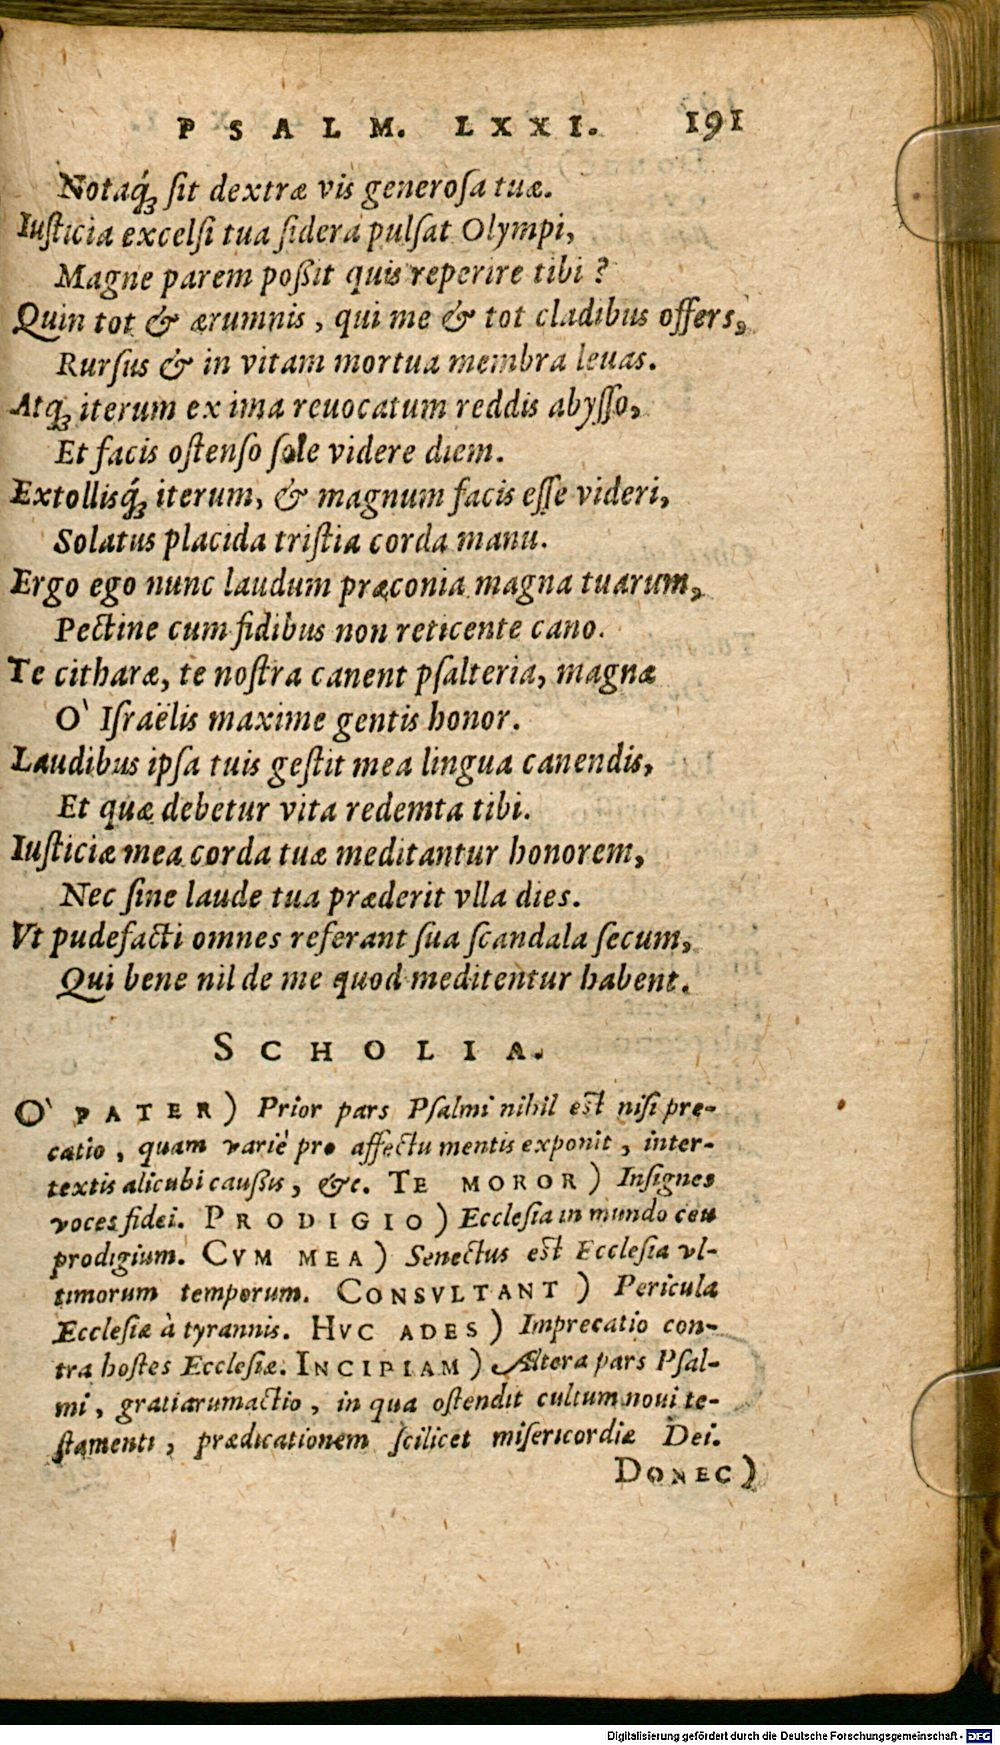 PSALM. LXXI. 191
Notaq́ꝫ ſit dextræ vis generoſa tuæ.
Iuſticia excelſi tua ſidera pulſat Olympi,
Magne parem poßit quis reperire tibi?
Quin tot & ærumnis, qui me & tot cladibus offers,
Rurſus & in vitam mortua membra leuas.
Atqꝫ iterum ex ima reuocatum reddis abyſſo,
Et facis oſtenſo ſole videre diem.
Extollisq́ꝫ iterum, & magnum facis eſſe videri,
Solatus placida triſtia corda manu.
Ergo ego nunc laudum præconia magna tuarum,
Pectine cum fidibus non reticente cano.
Te citharæ, te noſtra canent pſalteria, magnæ
O` Iſraëlis maxime gentis honor.
Laudibus ipſa tuis geſtit mea lingua canendis,
Et quæ debetur vita redemta tibi.
Iuſticiæ mea corda tuæ meditantur honorem,
Nec ſine laude tua præderit vlla dies.
Vt pudefacti omnes referant ſua ſcandala ſecum,
Qui bene nil de me quod meditentur habent.
SCHOLIA.
O` PATER) Prior pars Pſalmi nihil eſt niſi pre-
catio, quam variè pro affectu mentis exponit, inter-
textis alicubi caußis, &c. TE MOROR) Inſignes
voces fidei. PRODIGIO) Eccleſia in mundo ceu
prodigium. CVM MEA) Senectus eſt Eccleſia vl-
timorum temporum. CONSVLTANT) Pericula
Eccleſiæ à tyrannis. HVC ADES) Imprecatio con-
tra hoſtes Eccleſiæ. INCIPIAM) Altera pars Pſal-
mi, gratiarumactio, in qua oſtendit cultum noui te-
ſtamenti, prædicationem ſcilicet miſericordiæ Dei.
DONEC)
Digitalisierung gefördert durch die Deutsche Forschungsgemeinschaft - DFG